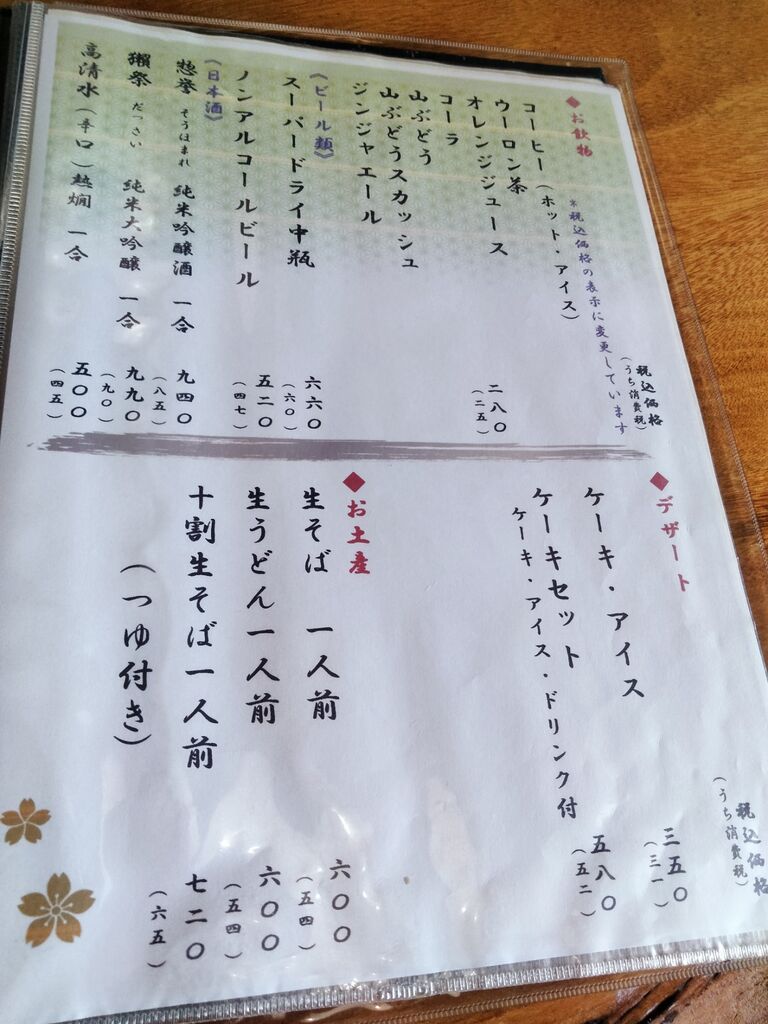 ◆お飲物
※税込価格の表示に変更しています
税込価格
（うち消費税）
コーヒー（ホット・アイス）
ウーロン茶
オレンジジュース
コーラ
山ぶどう
山ぶどうスカッシュ
ジンジャエール
二八〇
（二五）
《ビール類》
スーパードライ中瓶
六六〇
（六〇）
ノンアルコールビール
五二〇
（四七）
《日本酒》
惣誉 そうほまれ 純米吟醸酒 一合
九四〇
（八五）
獺祭 だっさい 純米大吟醸 一合
九九〇
（九〇）
高清水（辛口）熱燗 一合
五〇〇
（四五）
◆デザート
税込価格
（うち消費税）
ケーキ・アイス
三五〇
（三一）
ケーキセット
ケーキ・アイス・ドリンク付
五八〇
（五二）
◆お土産
生そば 一人前
六〇〇
（五四）
生うどん一人前
六〇〇
（五四）
十割生そば一人前
七二〇
（六五）
（つゆ付き）